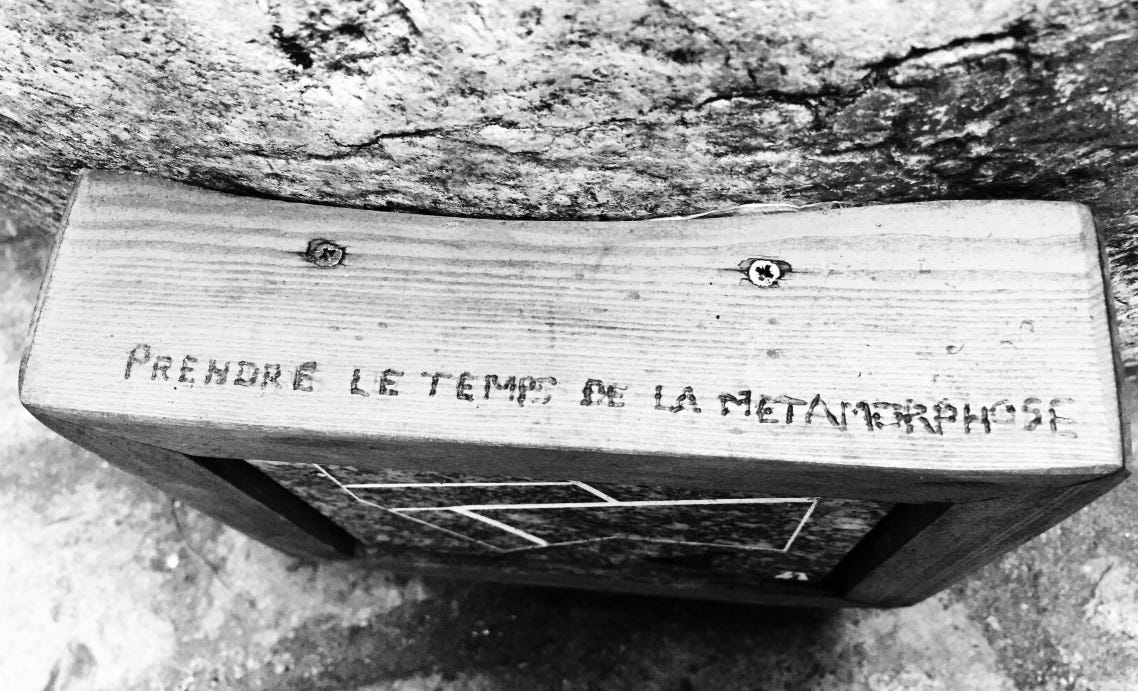 PRENDRE LE TEMPS DE LA METAMORPHOSE